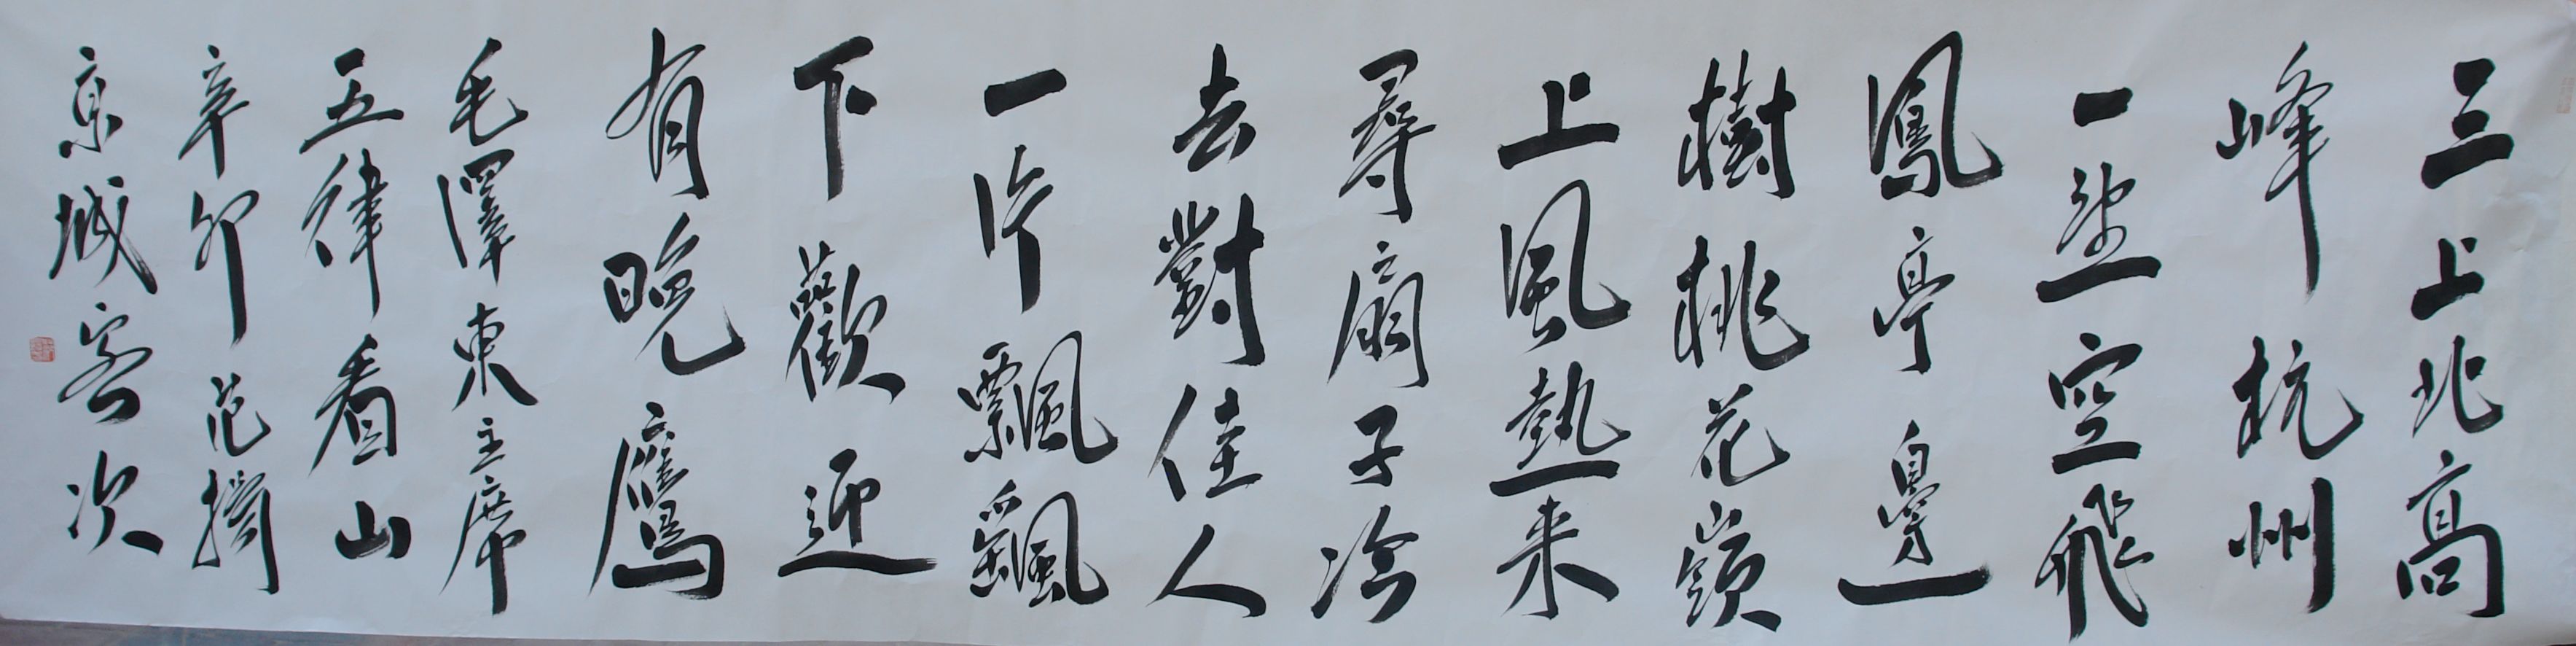 三上北高
峰杭州
一望空飛
鳳亭邊
樹桃花嶺
上風熱来
尋扇子冷
去對佳人
一片飄颻
下歡迎
有晚鷹
毛澤東主席
五律看山
辛卯范
京城客次